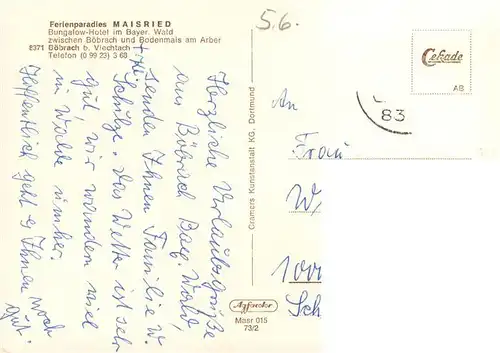 Ferienparadies MAISRIED
Bungalow-Hotel im Bayer. Wald
zwischen Böbrach und Bodenmais am Arber
8371 Böbrach b. Viechtach
Telefon (0 99 23) 3 68
5.6.
Herzliche Urlaubsgrüße
aus Böbrach Bay. Wald,
senden Ihnen Familie W.
Schulze. Das Wetter ist sehr
gut, wir wandern viel
im Walde umher.
Hoffentlich geht es Ihnen noch
gut.
Cramers Kunstanstalt KG, Dortmund
Agfacolor
Masr 015
73/2
Cekade
AB
83
An
Frau
W
1000
Sch